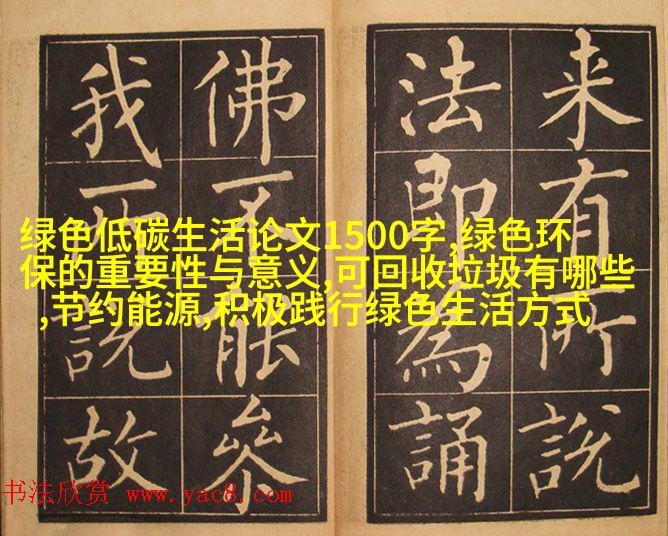 来有所說
法即為誦
佛不能叅
我說故
绿色低碳生活论文1500字,绿色环
保的重要性与意义,可回收垃圾有哪些
,节约能源,积极践行绿色生活方式
书法欣赏 www.yac8.com